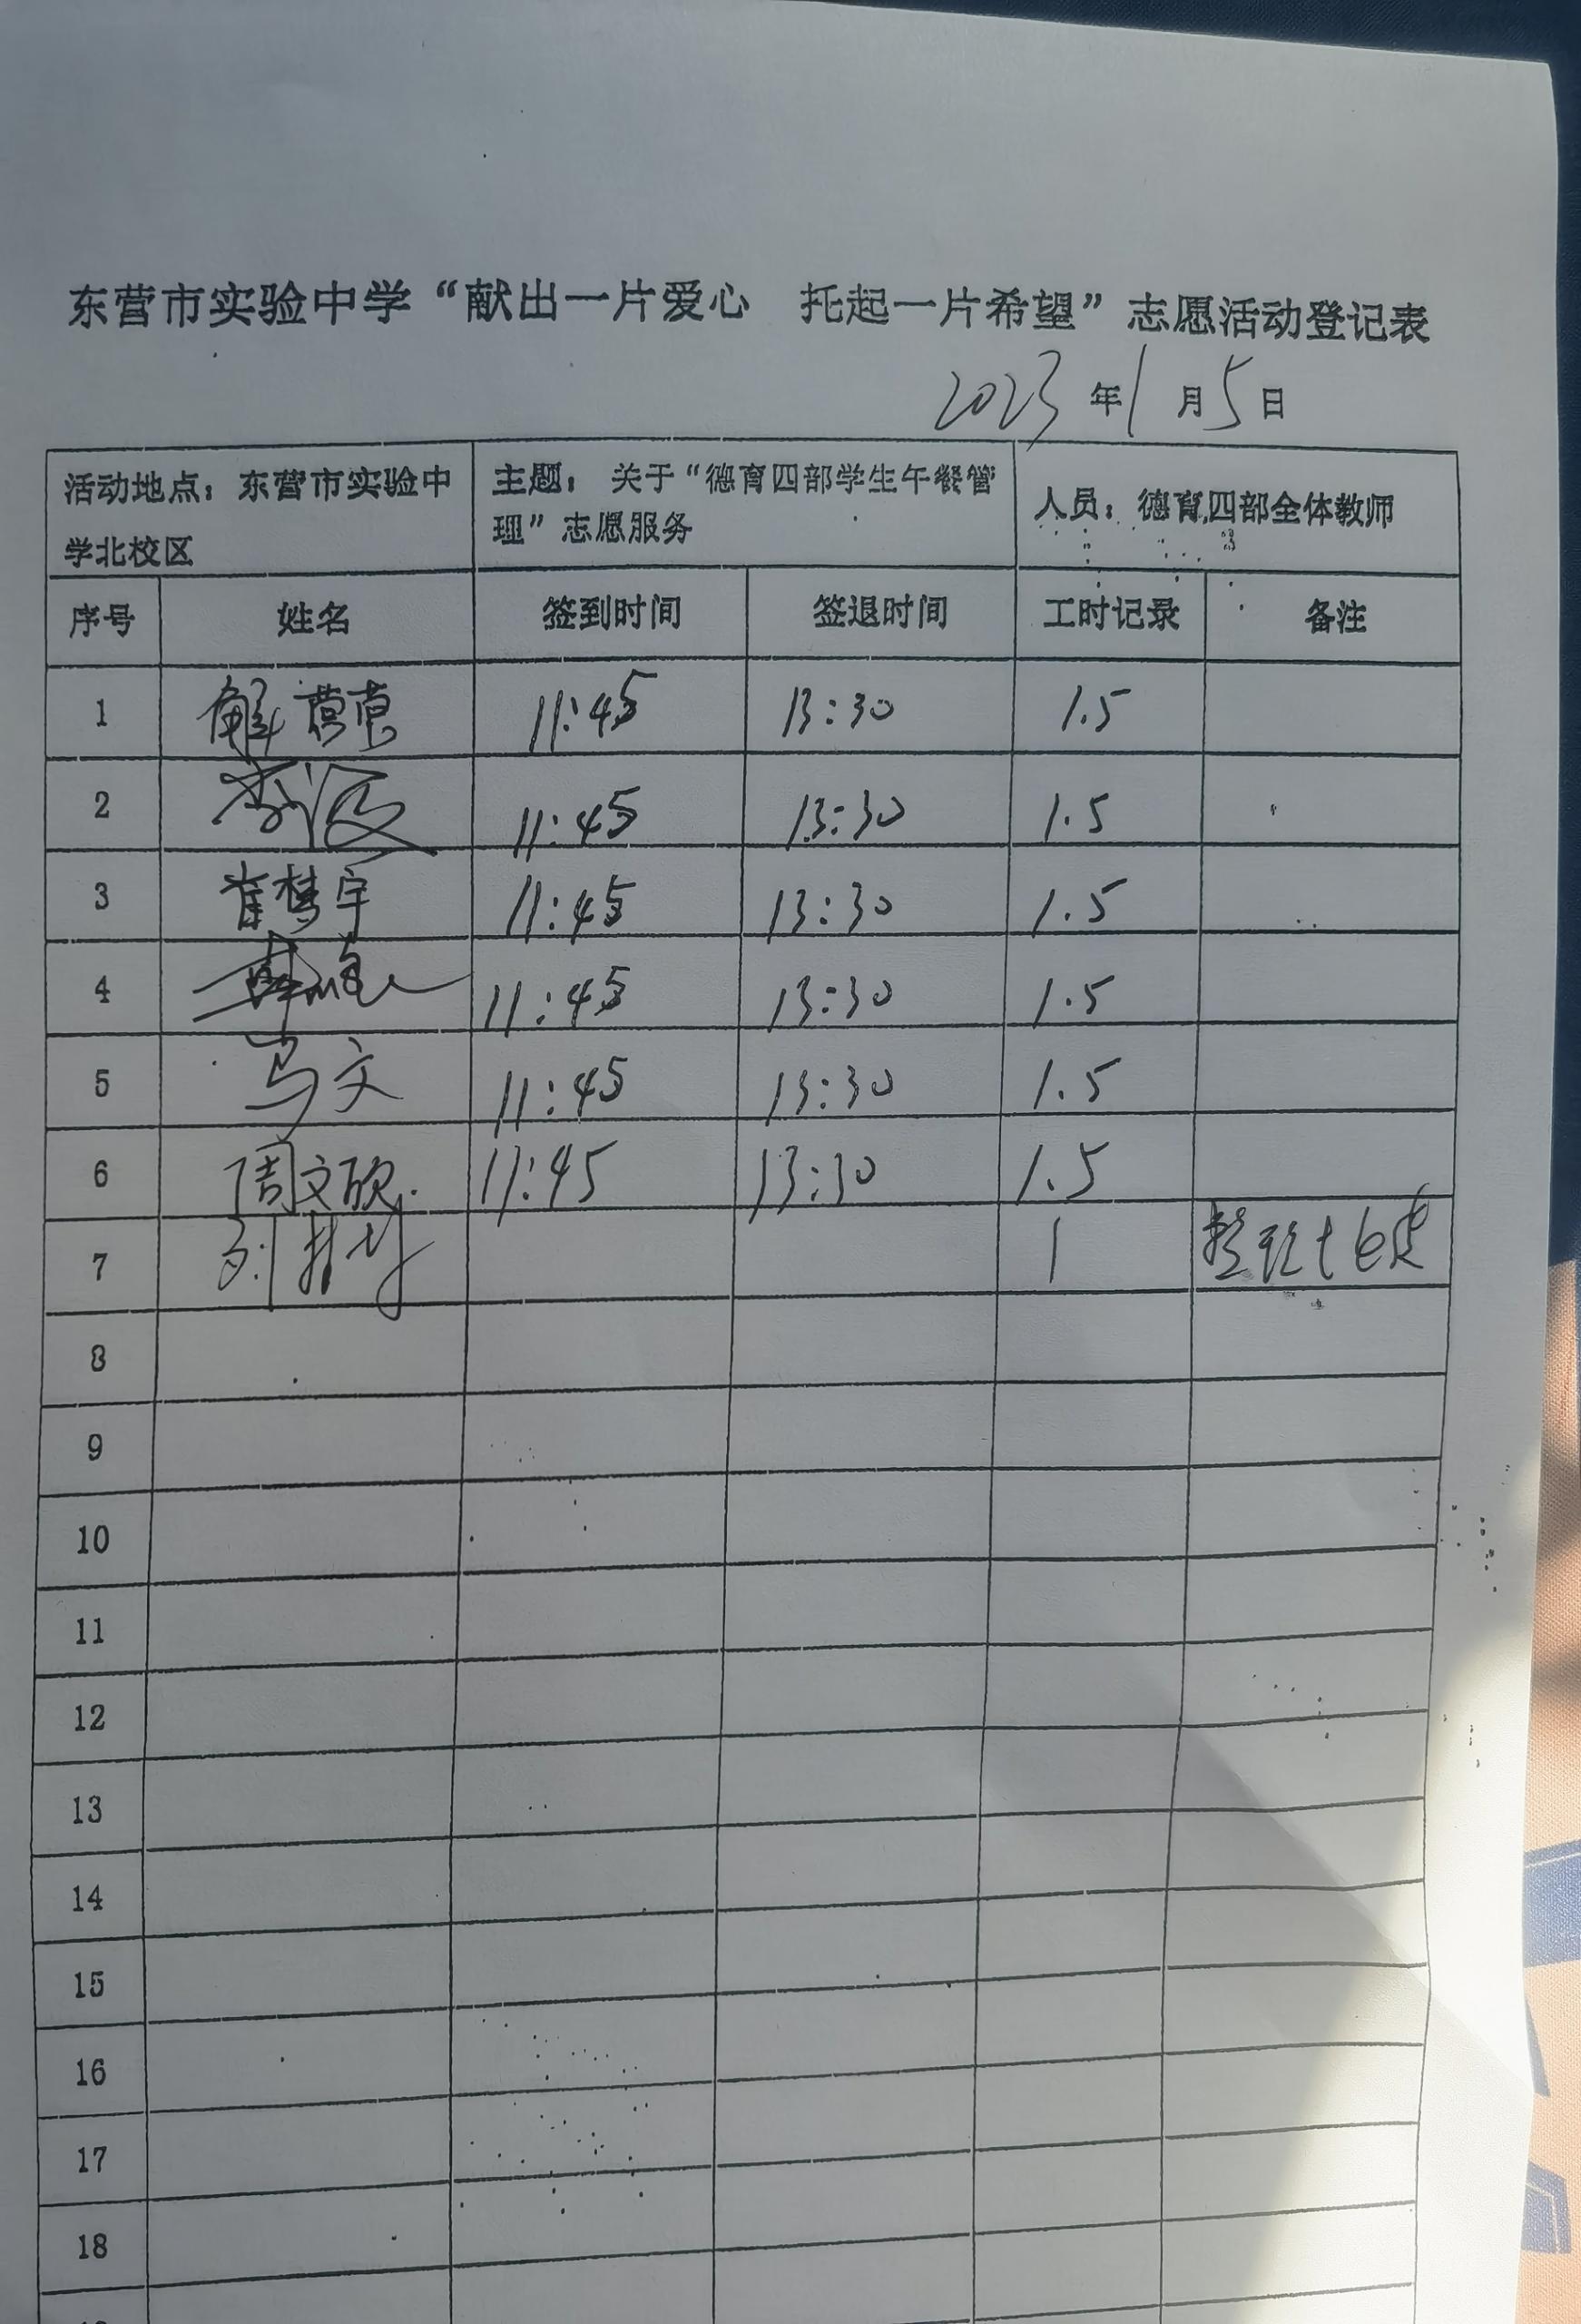 东营市实验中学“献出一片爱心 托起一片希望”志愿活动登记表
2023年1月5日
活动地点：东营市实验中
学北校区
主题：关于“德育四部学生午餐管
理”志愿服务
人员：德育四部全体教师
序号 姓名 签到时间 签退时间 工时记录 备注
1 解 11:45 13:30 1.5
2 李 11:45 13:30 1.5
3 崔梦宇 11:45 13:30 1.5
4 11:45 13:30 1.5
5 马文 11:45 13:30 1.5
6 周文欣 11:45 13:30 1.5
7 刘 1 整理
8
9
10
11
12
13
14
15
16
17
18